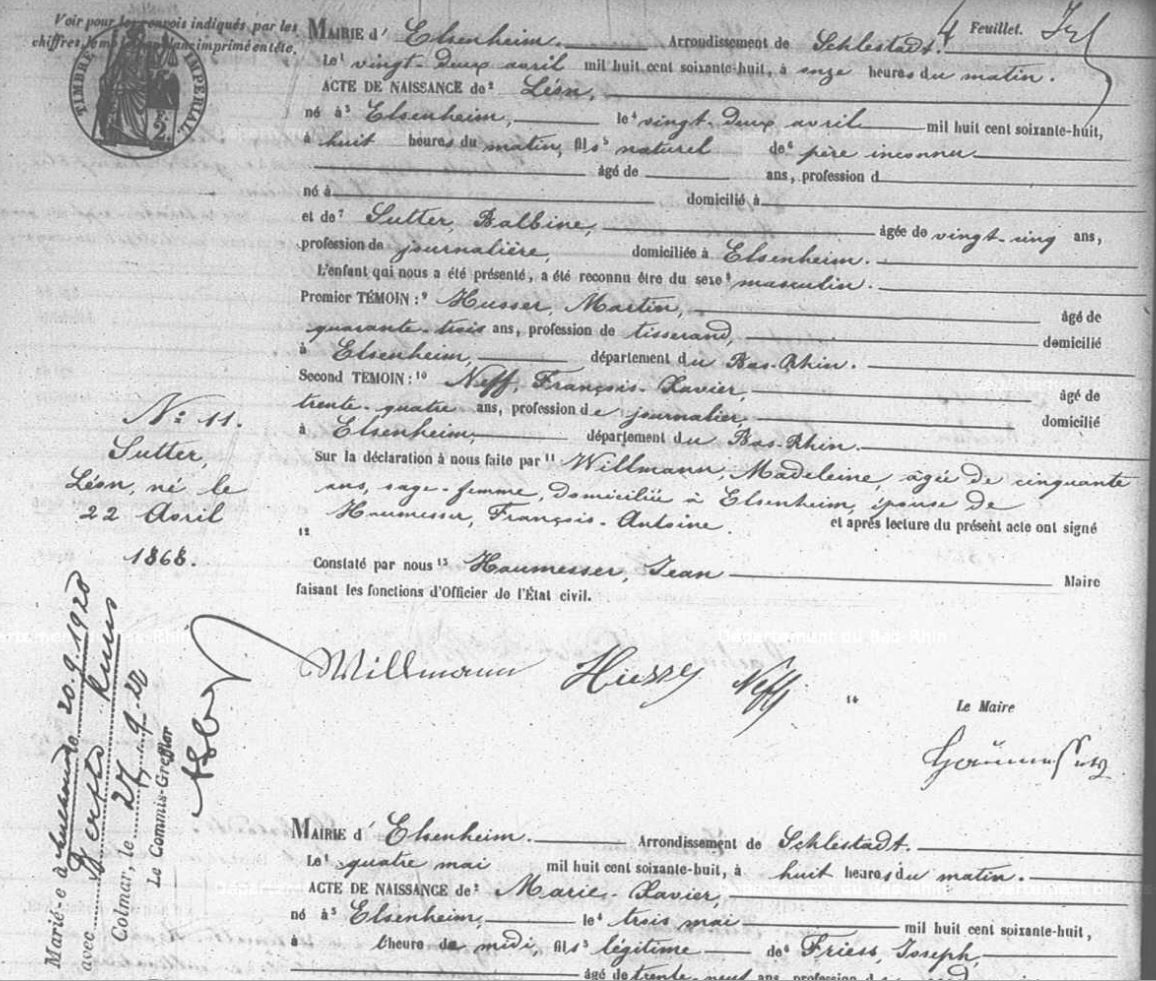 Voir pour les renvois indiqués par les
chiffres, le même imprimé en tête.
TIMBRE IMPÉRIAL
2
4 Feuillet.
MAIRIE d' Elsenheim. Arrondissement de Schlestadt.
Le¹ vingt-deux avril mil huit cent soixante-huit, à onze heures du matin.
ACTE DE NAISSANCE de² Léon,
né à³ Elsenheim, le⁴ vingt-deux avril mil huit cent soixante-huit,
à huit heures du matin, fils⁵ naturel de⁶ père inconnu
âgé de ans, profession d
né à domicilié à
et de⁷ Sutter, Balbine, âgée de vingt-cinq ans,
profession de journalière, domiciliée à Elsenheim.
L'enfant qui nous a été présenté, a été reconnu être du sexe⁸ masculin.
Premier TÉMOIN :⁹ Husser, Martin, âgé de
quarante-trois ans, profession de tisserand, domicilié
à Elsenheim, département du Bas-Rhin.
Second TÉMOIN :¹⁰ Neff, François-Xavier, âgé de
trente-quatre ans, profession de journalier, domicilié
à Elsenheim, département du Bas-Rhin.
Sur la déclaration à nous faite par¹¹ Willmann, Madeleine, âgée de cinquante
ans, sage-femme, domiciliée à Elsenheim, épouse de
Haumesser, François-Antoine. et après lecture du présent acte ont signé
¹²
Constaté par nous¹³ Haumesser, Jean Maire
faisant les fonctions d'Officier de l'État civil.
Willmann Husser Neff
¹⁴ Le Maire
Haumesser
N° 11.
Sutter,
Léon, né le
22 Avril
1868.
Marié à 20.9.1920
avec Berthe
Colmar, le 27.9.20
Le Commis-Greffier
Département du Bas-Rhin
MAIRIE d' Elsenheim. Arrondissement de Schlestadt.
Le¹ quatre mai mil huit cent soixante-huit, à huit heures du matin.
ACTE DE NAISSANCE de² Marie-Xavier,
né à³ Elsenheim, le⁴ trois mai mil huit cent soixante-huit,
à l'heure de midi, fils⁵ légitime de⁶ Friess, Joseph,
âgé de trente-neuf ans, profession d